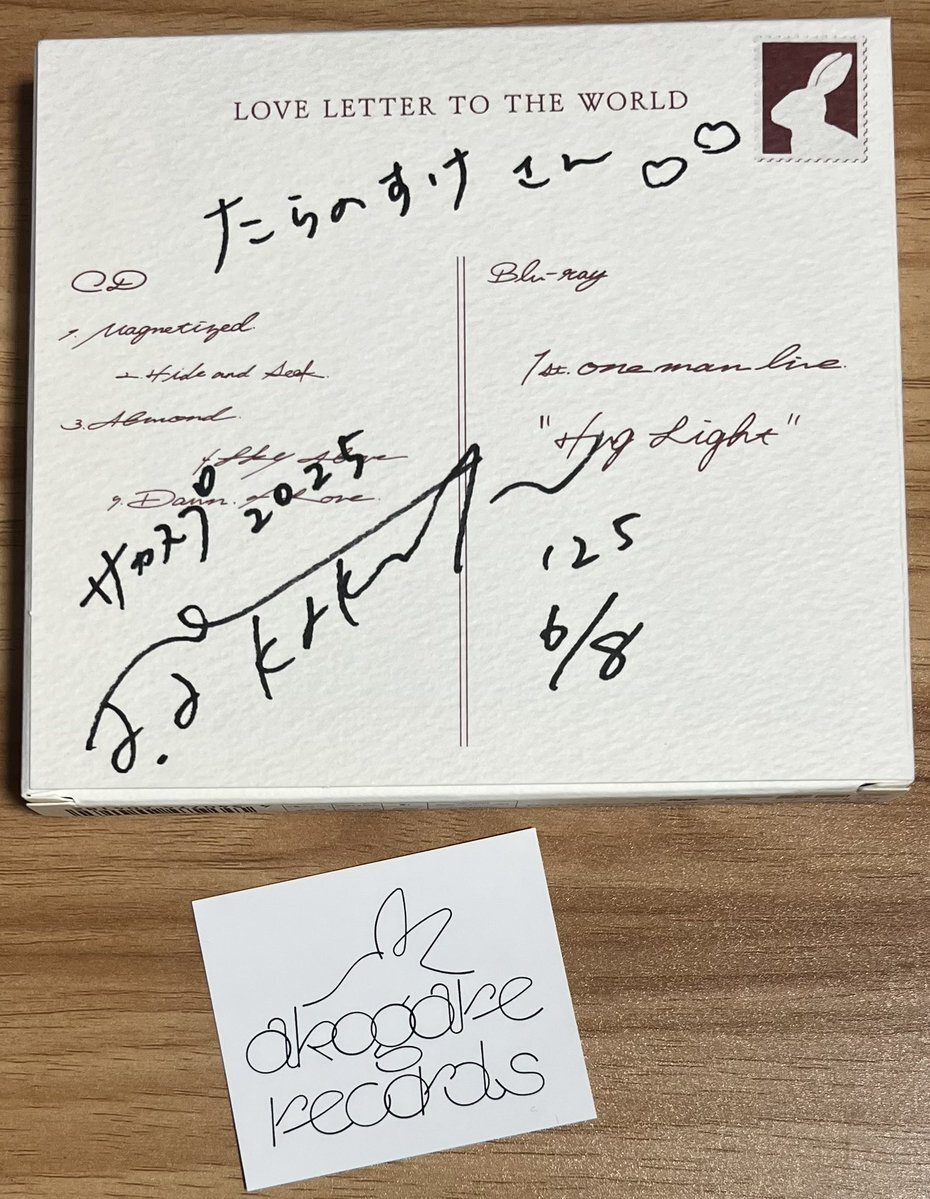 LOVE LETTER TO THE WORLD
たらのすけ さん
CD
1. Magnetized
2. Hide and Seek
3. Almond
Dawn of Love
2025
Blu-ray
1st. one man live
"Hug Light"
'25
6/8
akogare
records